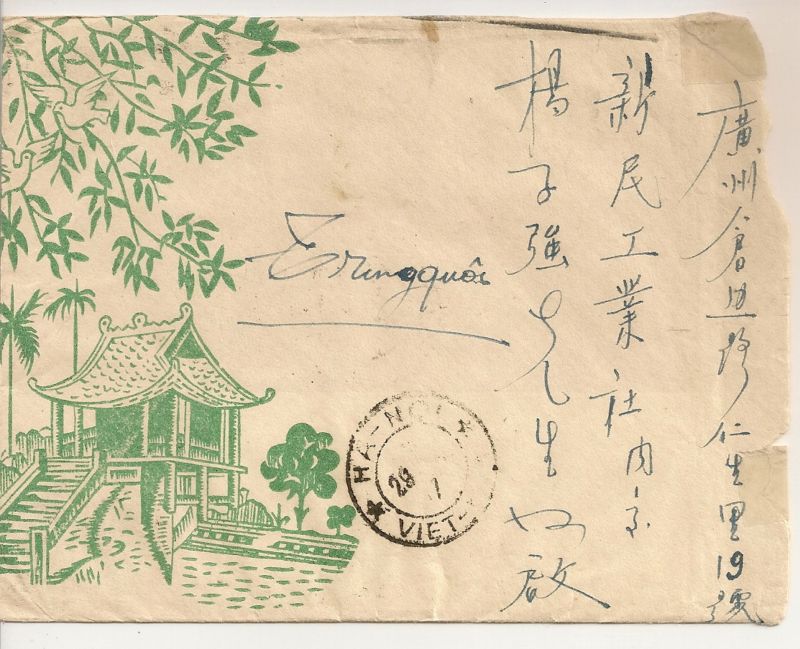 廣州倉边路仁生里19號
新民工業社内交
楊子強先生 啟
Trungquôc
HA-NOI
28 1
VIET